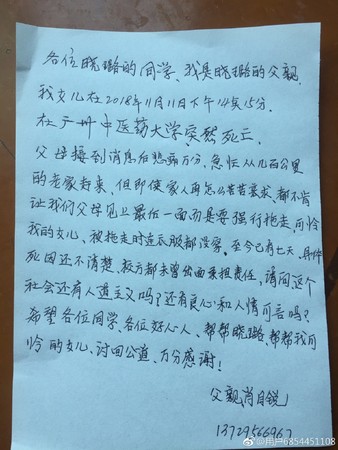 各位晓璐的同学、我是晓璐的父亲
我女儿在2018年11月11日下午14点15分.
在广州中医药大学突然死亡.
父母接到消息后悲痛万分、急忙从几百公里
的老家寿来、但即使家人再怎么苦苦哀求、都不肯
让我们父母见上最后一面而是要强行拖走、可怜
我的女儿、被拖走时连衣服都没穿、至今已有七天、具体
死因还不清楚、校方都未曾出面承担责任、请问这个
社会还有人道主义吗?还有良心和人情可言吗?
希望各位同学、各位好心人、帮帮晓璐、帮帮我可
怜的女儿、讨回公道、万分感谢!
父亲肖自锐
13729566967
@用户6854451108